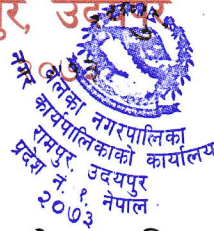 पुर, उदयपुर
२०७३
बेलका नगरपालिका
नगर कार्यपालिकाको कार्यालय
रामपुर, उदयपुर
प्रदेश नं. १, नेपाल
२०७३